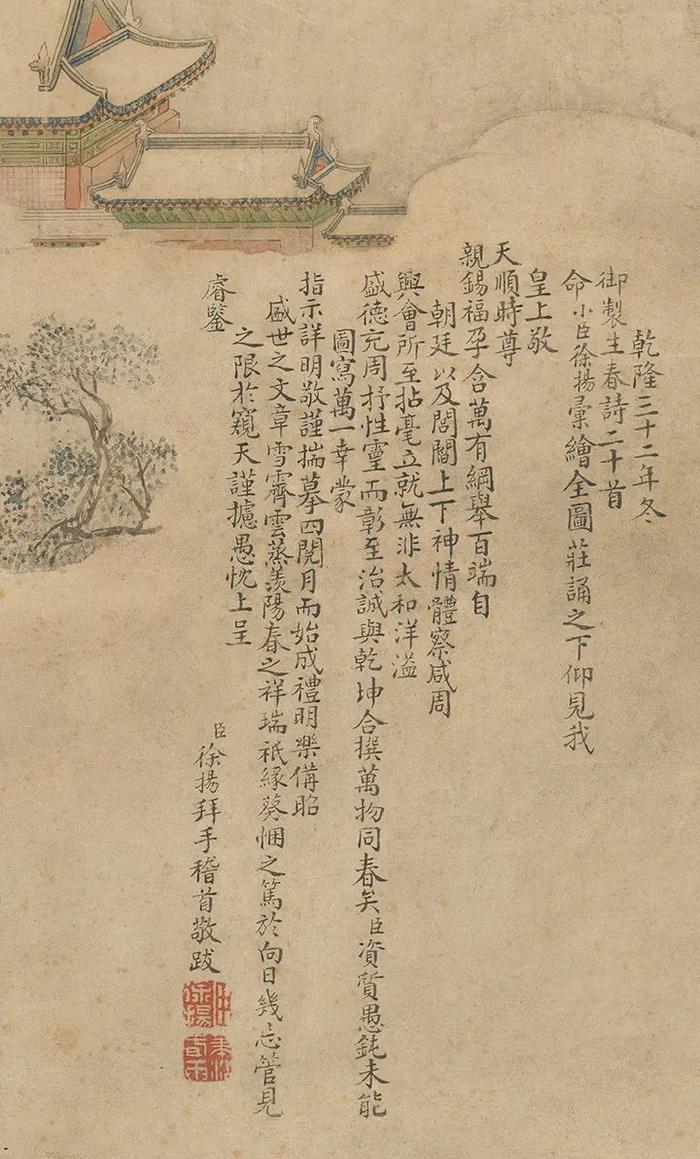 乾隆三十二年冬
御製生春詩二十首
命小臣徐揚彙繪全圖莊誦之下仰見我
皇上敬
天順時尊
親錫福孕含萬有綱舉百端自
朝廷以及閭閻上下神情體察咸周
興會所至拈毫立就無非太和洋溢
盛德充周抒性靈而彰至治誠與乾坤合撰萬物同春矣臣資質愚鈍未能
圖寫萬一幸蒙
指示詳明敬謹揣摹四閱月而始成禮明樂備昭
盛世之文章雪霽雲蒸羨陽春之祥瑞祇緣葵悃之篤於向日幾忘管見
之限於窺天謹攄愚忱上呈
睿鑒
臣徐揚拜手稽首敬跋
臣徐揚
筆沾春雨